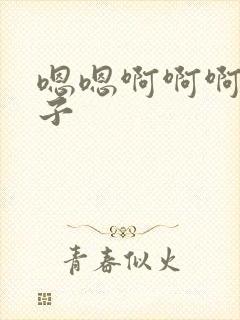 嗯嗯啊啊啊
子
青春似火